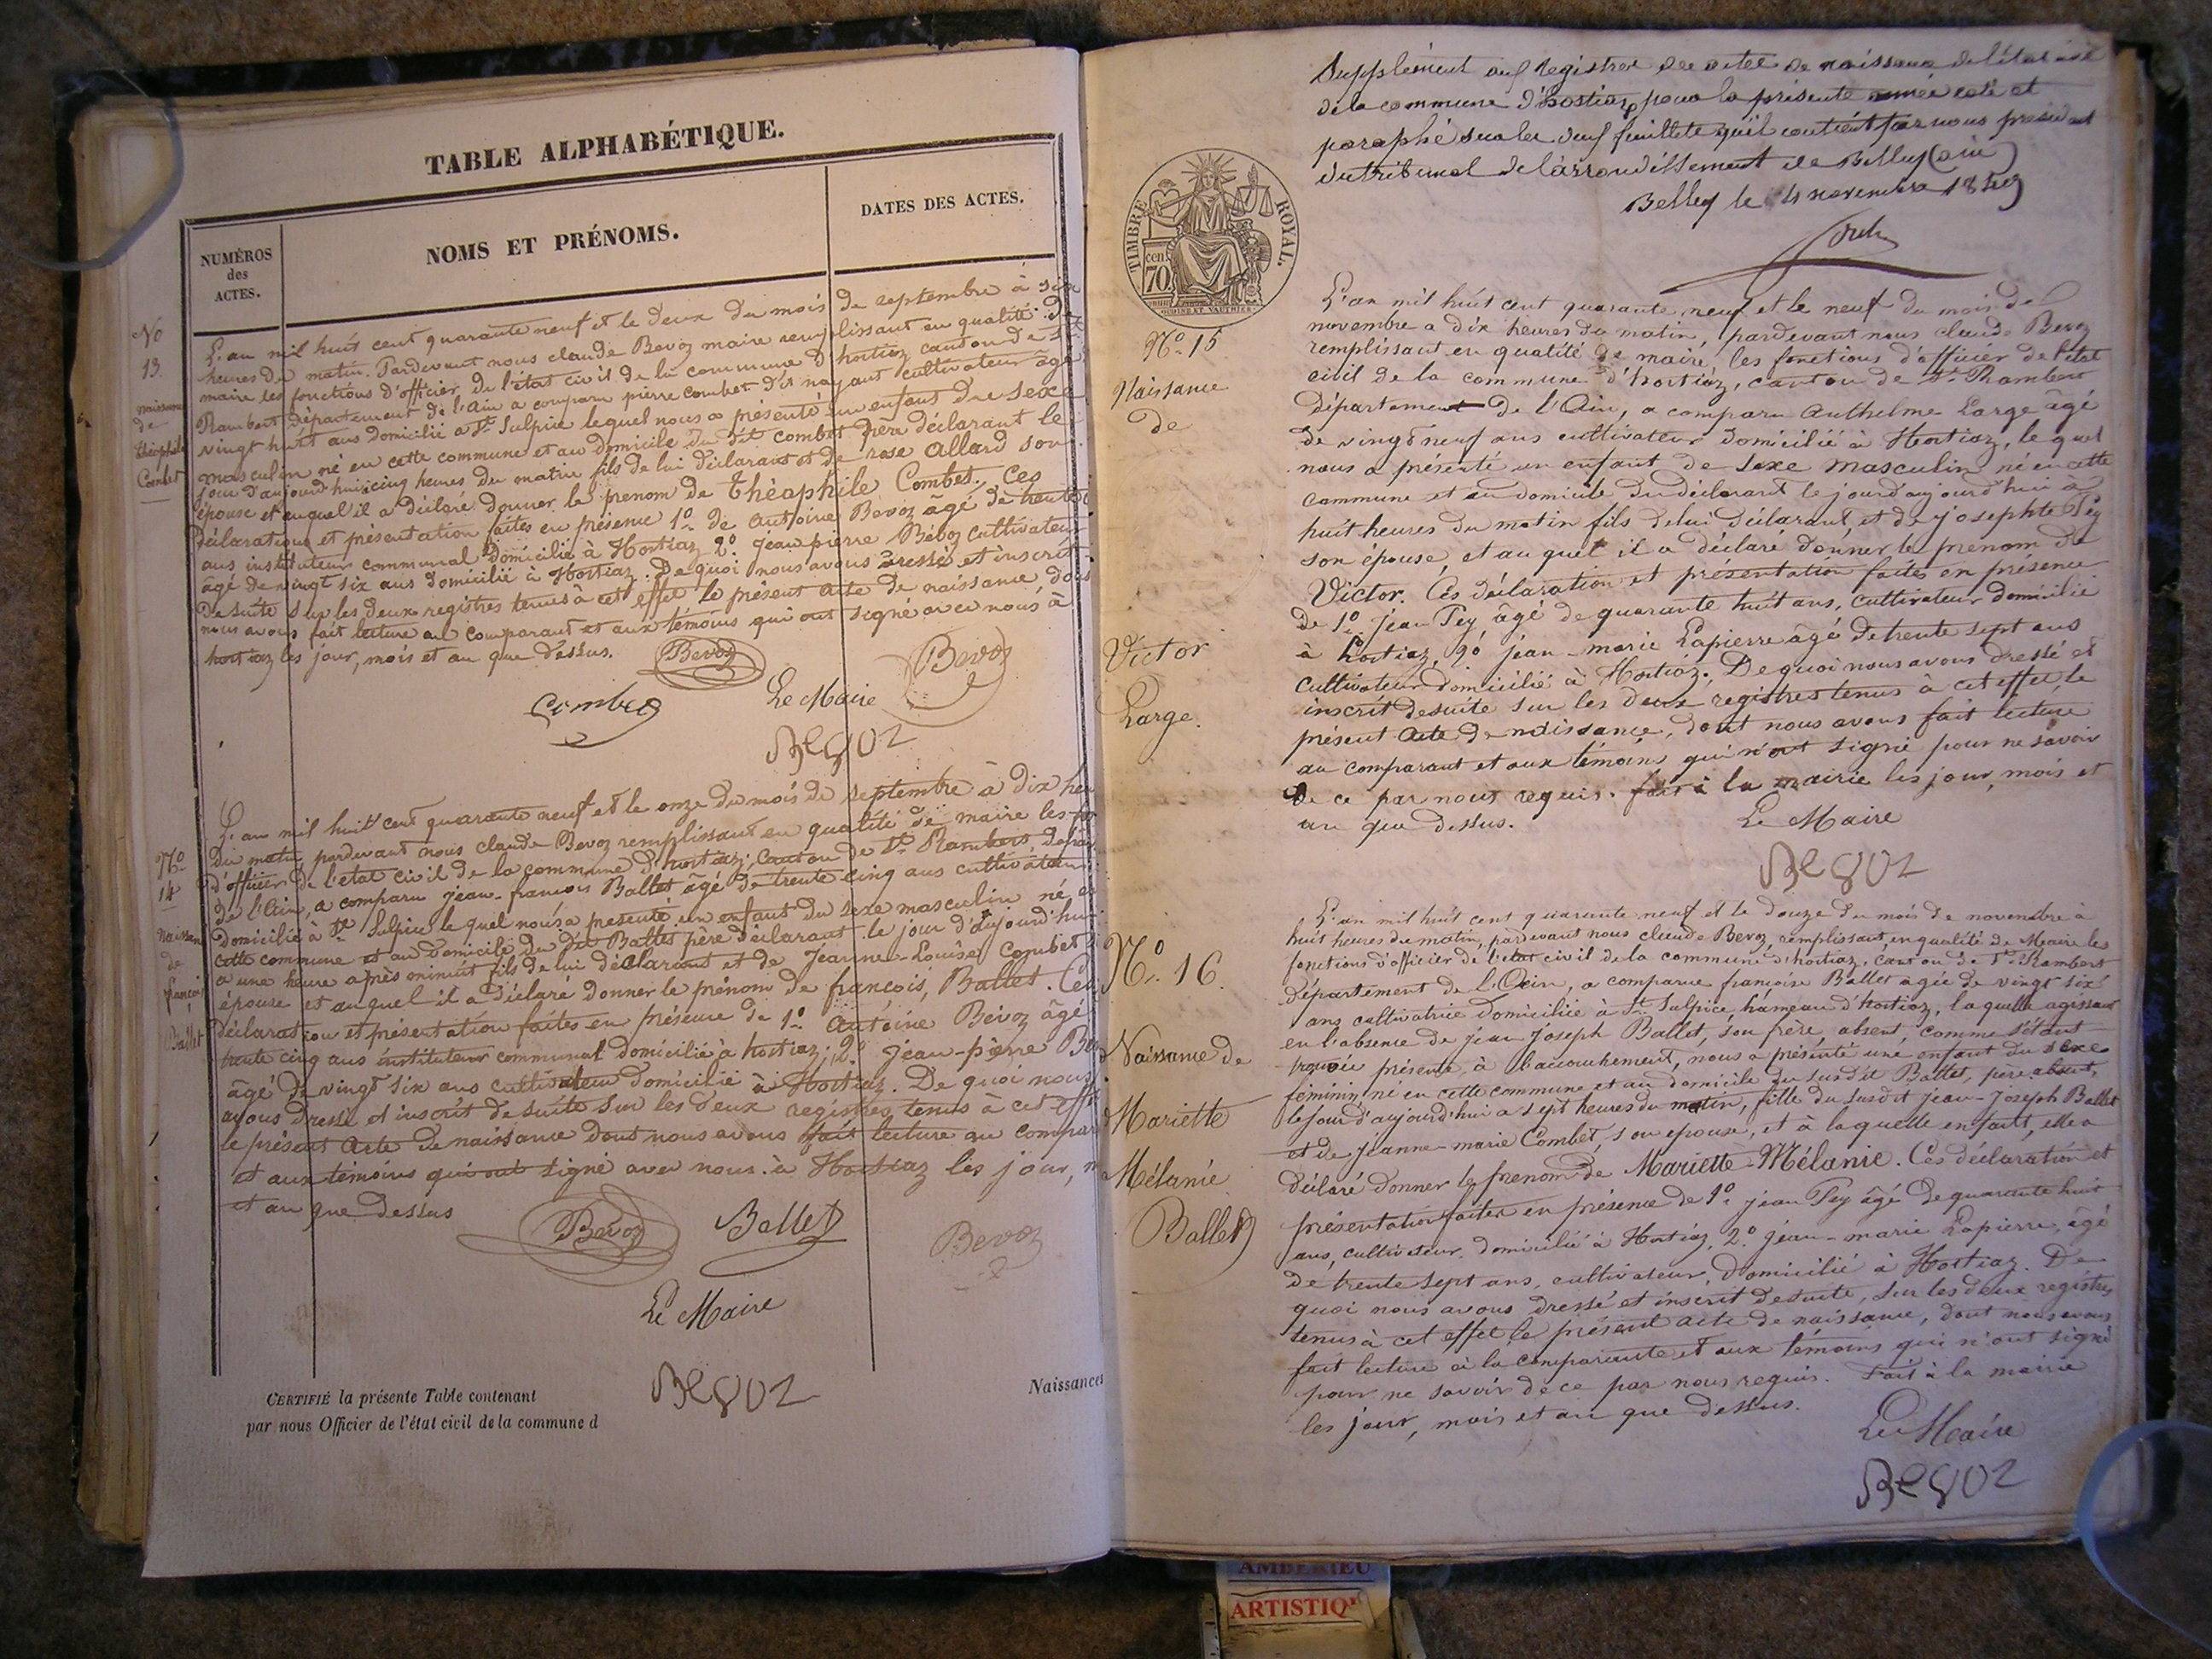 TABLE ALPHABÉTIQUE.
NUMÉROS
des
ACTES.
NOMS ET PRÉNOMS.
DATES DES ACTES.
No
13.
naissance
de
théophile
Combet
L'an mil huit cent quarante neuf et le deux du mois de septembre à six
heures du matin. Pardevant nous claude Bevoz maire remplissant en qualité de
maire les fonctions d'officier de l'état civil de la commune d'hortiaz canton de St
Rambert département de l'ain a comparu pierre combet dit nayant cultivateur âgé
vingt huit ans domicilié a St Sulpice lequel nous a présenté un enfant du sexe
masculin né en cette commune et au domicile du dit combet père déclarant le
jour d'aujourd'hui à cinq heures du matin fils de lui déclarant et de rose allard son
épouse et auquel il a déclaré donner le prenom de théophile Combet. Ces
déclaration et présentation faites en présence 1o de antoine Bevoz âgé de trente
ans instituteur communal domicilié à Hortiaz 2o jean pierre Bévoz cultivateur
âgé de vingt six ans domicilié à Hortiaz. De quoi nous avons dressé et inscrit
de suite sur les deux registres tenus à cet effet le présent acte de naissance dont
nous avons fait lecture au comparant et aux témoins qui ont signé avec nous à
hortiaz les jour, mois et an que dessus.
Bevoz
Bevoz
Combet
Le Maire
Bevoz
No
14
naissance
de
françois
Ballet
L'an mil huit cent quarante neuf et le onze du mois de septembre à dix heu
du matin pardevant nous claude Bevoz remplissant en qualité de maire les fo
d'officier de l'état civil de la commune d'hortiaz, canton de St Rambert, dépar
de l'Ain, a comparu jean-françois Ballet âgé de trente cinq ans cultivateur
domicilié à St Sulpice le quel nous a présenté un enfant du sexe masculin né en
cette commune et au domicile du dit Ballet père déclarant le jour d'aujourd'hui
a une heure après minuit fils de lui déclarant et de jeanne-Louise Combet
épouse et auquel il a déclaré donner le prénom de françois, Ballet. Ces
déclaration et présentation faites en présence de 1o antoine Bévoz âgé
trente cinq ans instituteur communal domicilié à hortiaz; 2o jean-pierre Bev
âgé de vingt six ans cultivateur domicilié à Hortiaz. De quoi nous
avons dressé et inscrit de suite sur les deux registres tenus à cet effet
le présent acte de naissance dont nous avons fait lecture au compar
et aux témoins qui ont signé avec nous à Hortiaz les jour, m
et an que dessus
Bevoz
Ballet
Bevoz
Le Maire
Bevoz
CERTIFIÉ la présente Table contenant
par nous Officier de l'état civil de la commune d
Naissances
Supplément aux registres des actes de naissance de l'état civil
de la commune d'hostiaz pour la présente année coté et
paraphé sur les deux feuillets qu'il contient par nous président
du tribunal de l'arrondissement de Belley (ain)
Belley le 4 novembre 1849
TIMBRE ROYAL.
70 cen
No 15
Naissance
de
Victor
Large.
L'an mil huit cent quarante neuf et le neuf du mois de
novembre a dix heures du matin, pardevant nous claude Bevoz
remplissant en qualité de maire les fonctions d'officier de l'état
civil de la commune d'hortiaz, canton de St Rambert
département de l'Ain, a comparu Anthelme Large âgé
de vingt neuf ans cultivateur domicilié à Hortiaz, le quel
nous a présenté un enfant de sexe masculin né en cette
commune et au domicile du déclarant le jour d'aujourd'hui a
huit heures du matin fils de lui déclarant, et de josephte Pey
son épouse, et au quel il a déclaré donner le prenom de
Victor. Ces déclaration et présentation faites en présence
de 1o jean Pey âgé de quarante huit ans, cultivateur domicilié
à hortiaz, 2o jean-marie Lapierre âgé de trente sept ans
cultivateur domicilié à Hortiaz. De quoi nous avons dressé et
inscrit de suite sur les deux registres tenus à cet effet, le
présent acte de naissance, dont nous avons fait lecture
au comparant et aux témoins qui n'ont signé pour ne savoir
de ce par nous requis. fait à la mairie les jour, mois et
an que dessus.
Le Maire
Bevoz
No 16.
Naissance de
Mariette
Mélanie
Ballet
L'an mil huit cent quarante neuf et le douze du mois de novembre à
huit heures du matin, pardevant nous claude Bevoz, remplissant, en qualité de Maire les
fonctions d'officier de l'état civil de la commune d'hortiaz, canton de St Rambert
département de l'Ain, a comparue françoise Ballet agée de vingt six
ans cultivatrice domicilié à St Sulpice, hameau d'hortiaz, laquelle agissant
en l'absence de jean joseph Ballet, son frère, absent, comme s'étant
trouvée présente à l'accouchement, nous a présenté une enfant du sexe
féminin né en cette commune et au domicile du susdit Ballet, père absent,
le jour d'aujourd'hui a sept heures du matin, fille du susdit jean-joseph Ballet
et de jeanne-marie Combet, son epouse, et à laquelle enfant, elle a
déclaré donner le prenom de Mariette-Mélanie. Ces déclaration et
présentation faites en présence de 1o jean Pey âgé de quarante huit
ans, cultivateur, domicilié à Hortiaz, 2o jean-marie Lapierre, âgé
de trente sept ans, cultivateur, domicilié à Hortiaz. De
quoi nous avons dressé et inscrit de suite, sur les deux registres
tenus à cet effet le présent acte de naissance, dont nous avons
fait lecture à la comparante et aux témoins qui n'ont signé
pour ne savoir de ce par nous requis. Fait à la mairie
les jour, mois et an que dessus.
Le Maire
Bevoz
AMBERIEU
ARTISTIQ